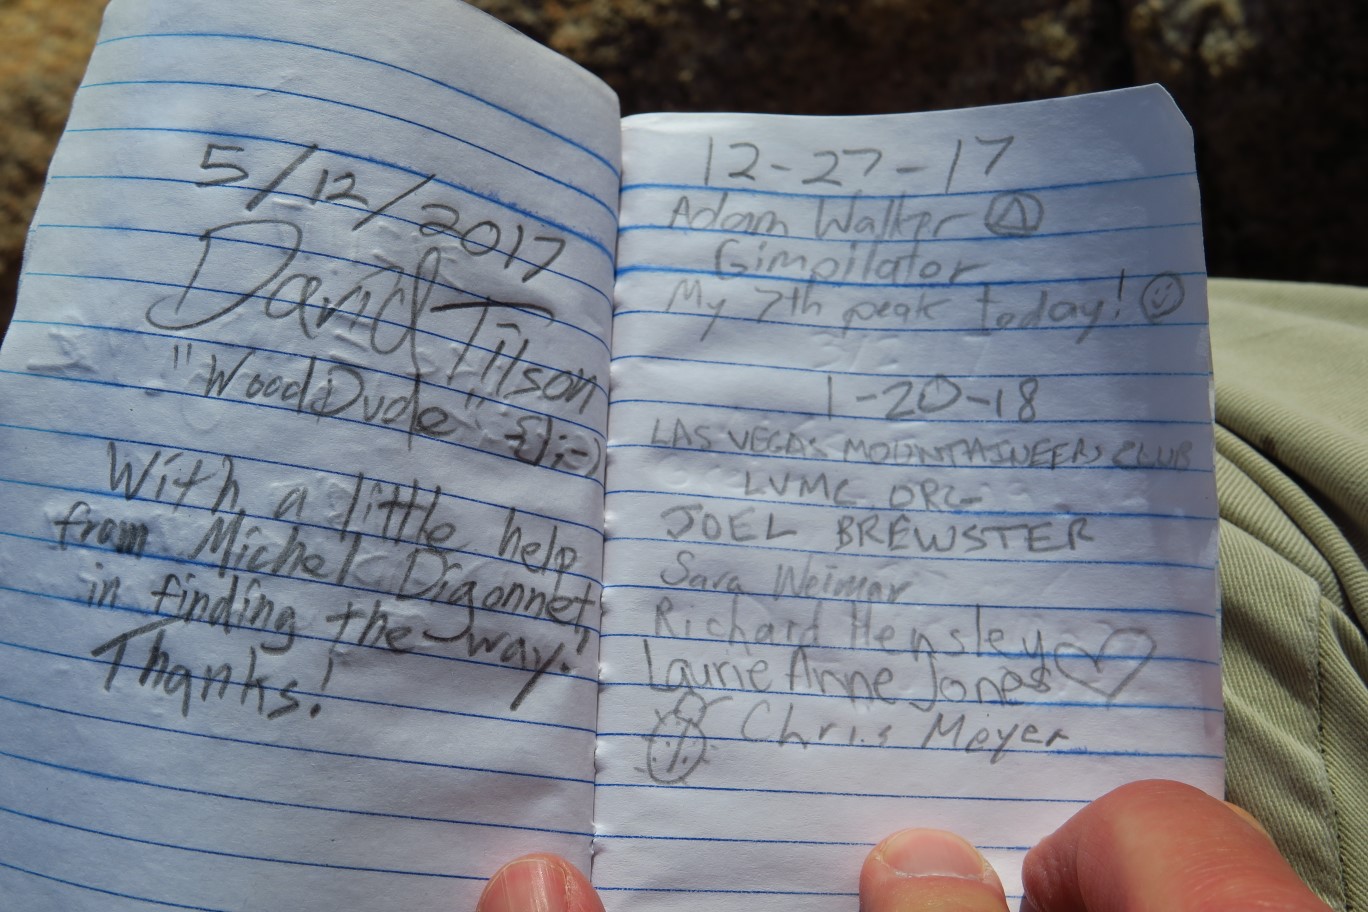 5/12/2017
David Tilson
"WoodDude" {|;-)
With a little help
from Michel Digonnet
in finding the way.
Thanks!
12-27-17
Adam Walker
Gimpilator
My 7th peak today!
1-20-18
LAS VEGAS MOUNTAINEERS CLUB
LVMC ORG
JOEL BREWSTER
Sara Weimar
Richard Hensley
Laurie Anne Jones
Chris Meyer